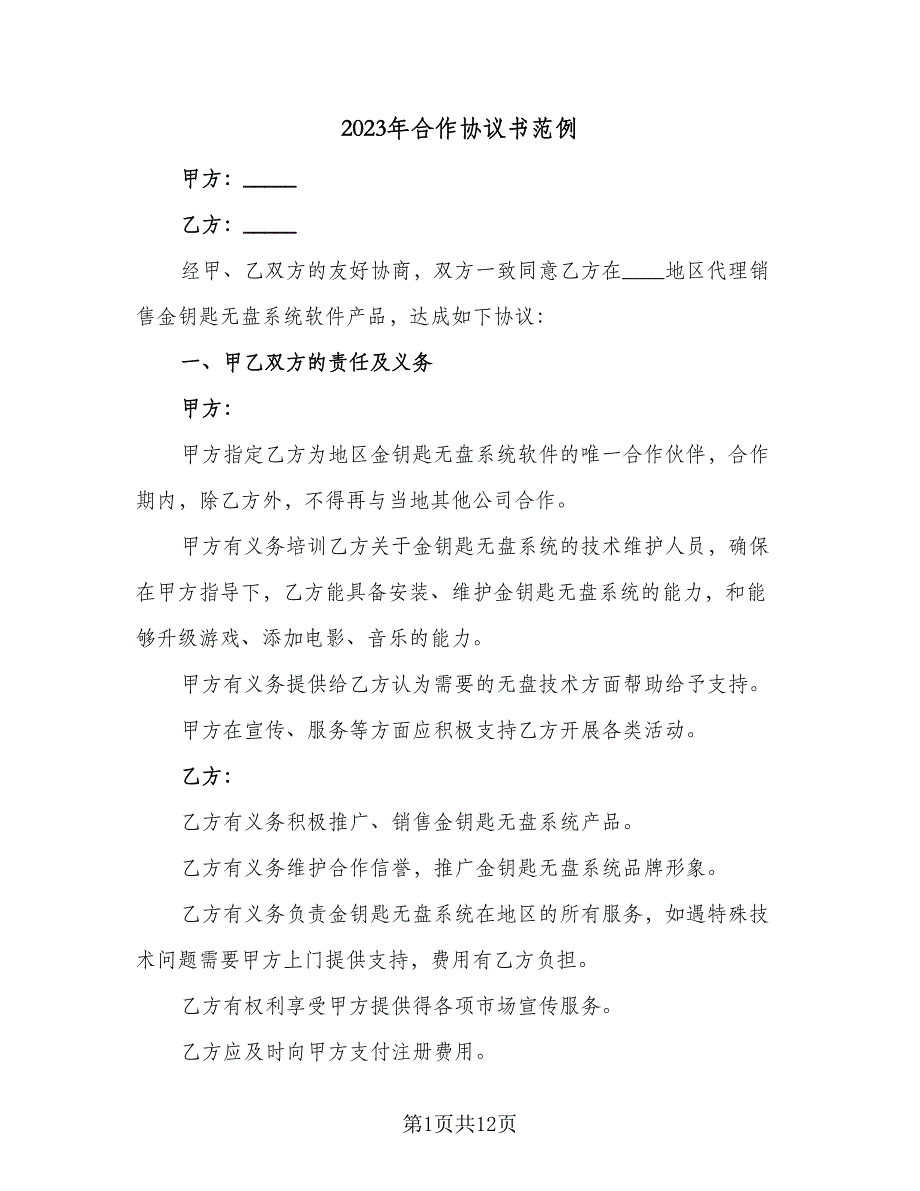 2023年合作协议书范例
甲方：_____
乙方：_____
经甲、乙双方的友好协商，双方一致同意乙方在____地区代理销
售金钥匙无盘系统软件产品，达成如下协议：
一、甲乙双方的责任及义务
甲方：
甲方指定乙方为地区金钥匙无盘系统软件的唯一合作伙伴，合作
期内，除乙方外，不得再与当地其他公司合作。
甲方有义务培训乙方关于金钥匙无盘系统的技术维护人员，确保
在甲方指导下，乙方能具备安装、维护金钥匙无盘系统的能力，和能
够升级游戏、添加电影、音乐的能力。
甲方有义务提供给乙方认为需要的无盘技术方面帮助给予支持。
甲方在宣传、服务等方面应积极支持乙方开展各类活动。
乙方：
乙方有义务积极推广、销售金钥匙无盘系统产品。
乙方有义务维护合作信誉，推广金钥匙无盘系统品牌形象。
乙方有义务负责金钥匙无盘系统在地区的所有服务，如遇特殊技
术问题需要甲方上门提供支持，费用有乙方负担。
乙方有权利享受甲方提供得各项市场宣传服务。
乙方应及时向甲方支付注册费用。
第1页共12页